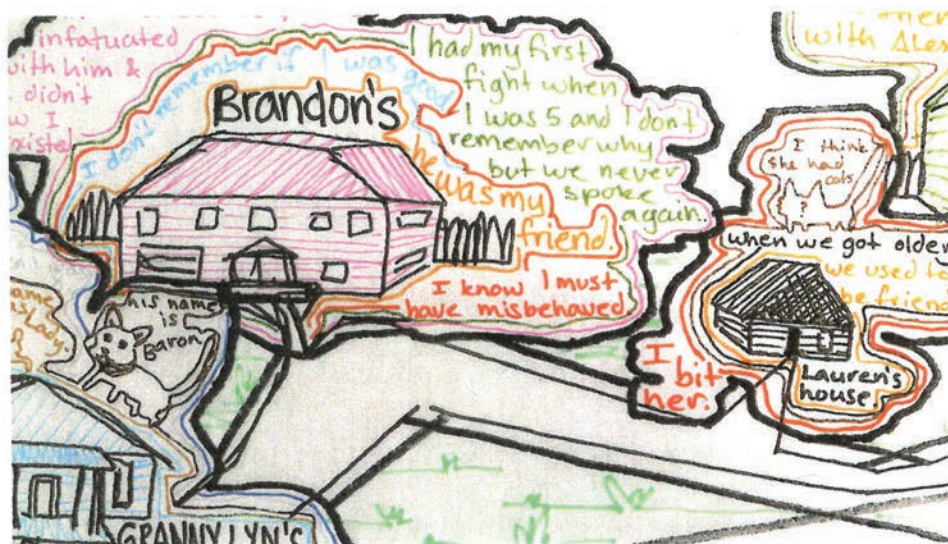 infatuated
with him &
didn't
I
I don't remember if I was good
Brandon's
he was my
friend.
I had my first
fight when
I was 5 and I don't
remember why
but we never
spoke
again.
I know I must
have misbehaved
his name
is
Baron
GRANNY LYN'S
with Alex
I think
she had
cats
?
when we got older
we used to
be friend
I
bit
her.
Lauren's
house.